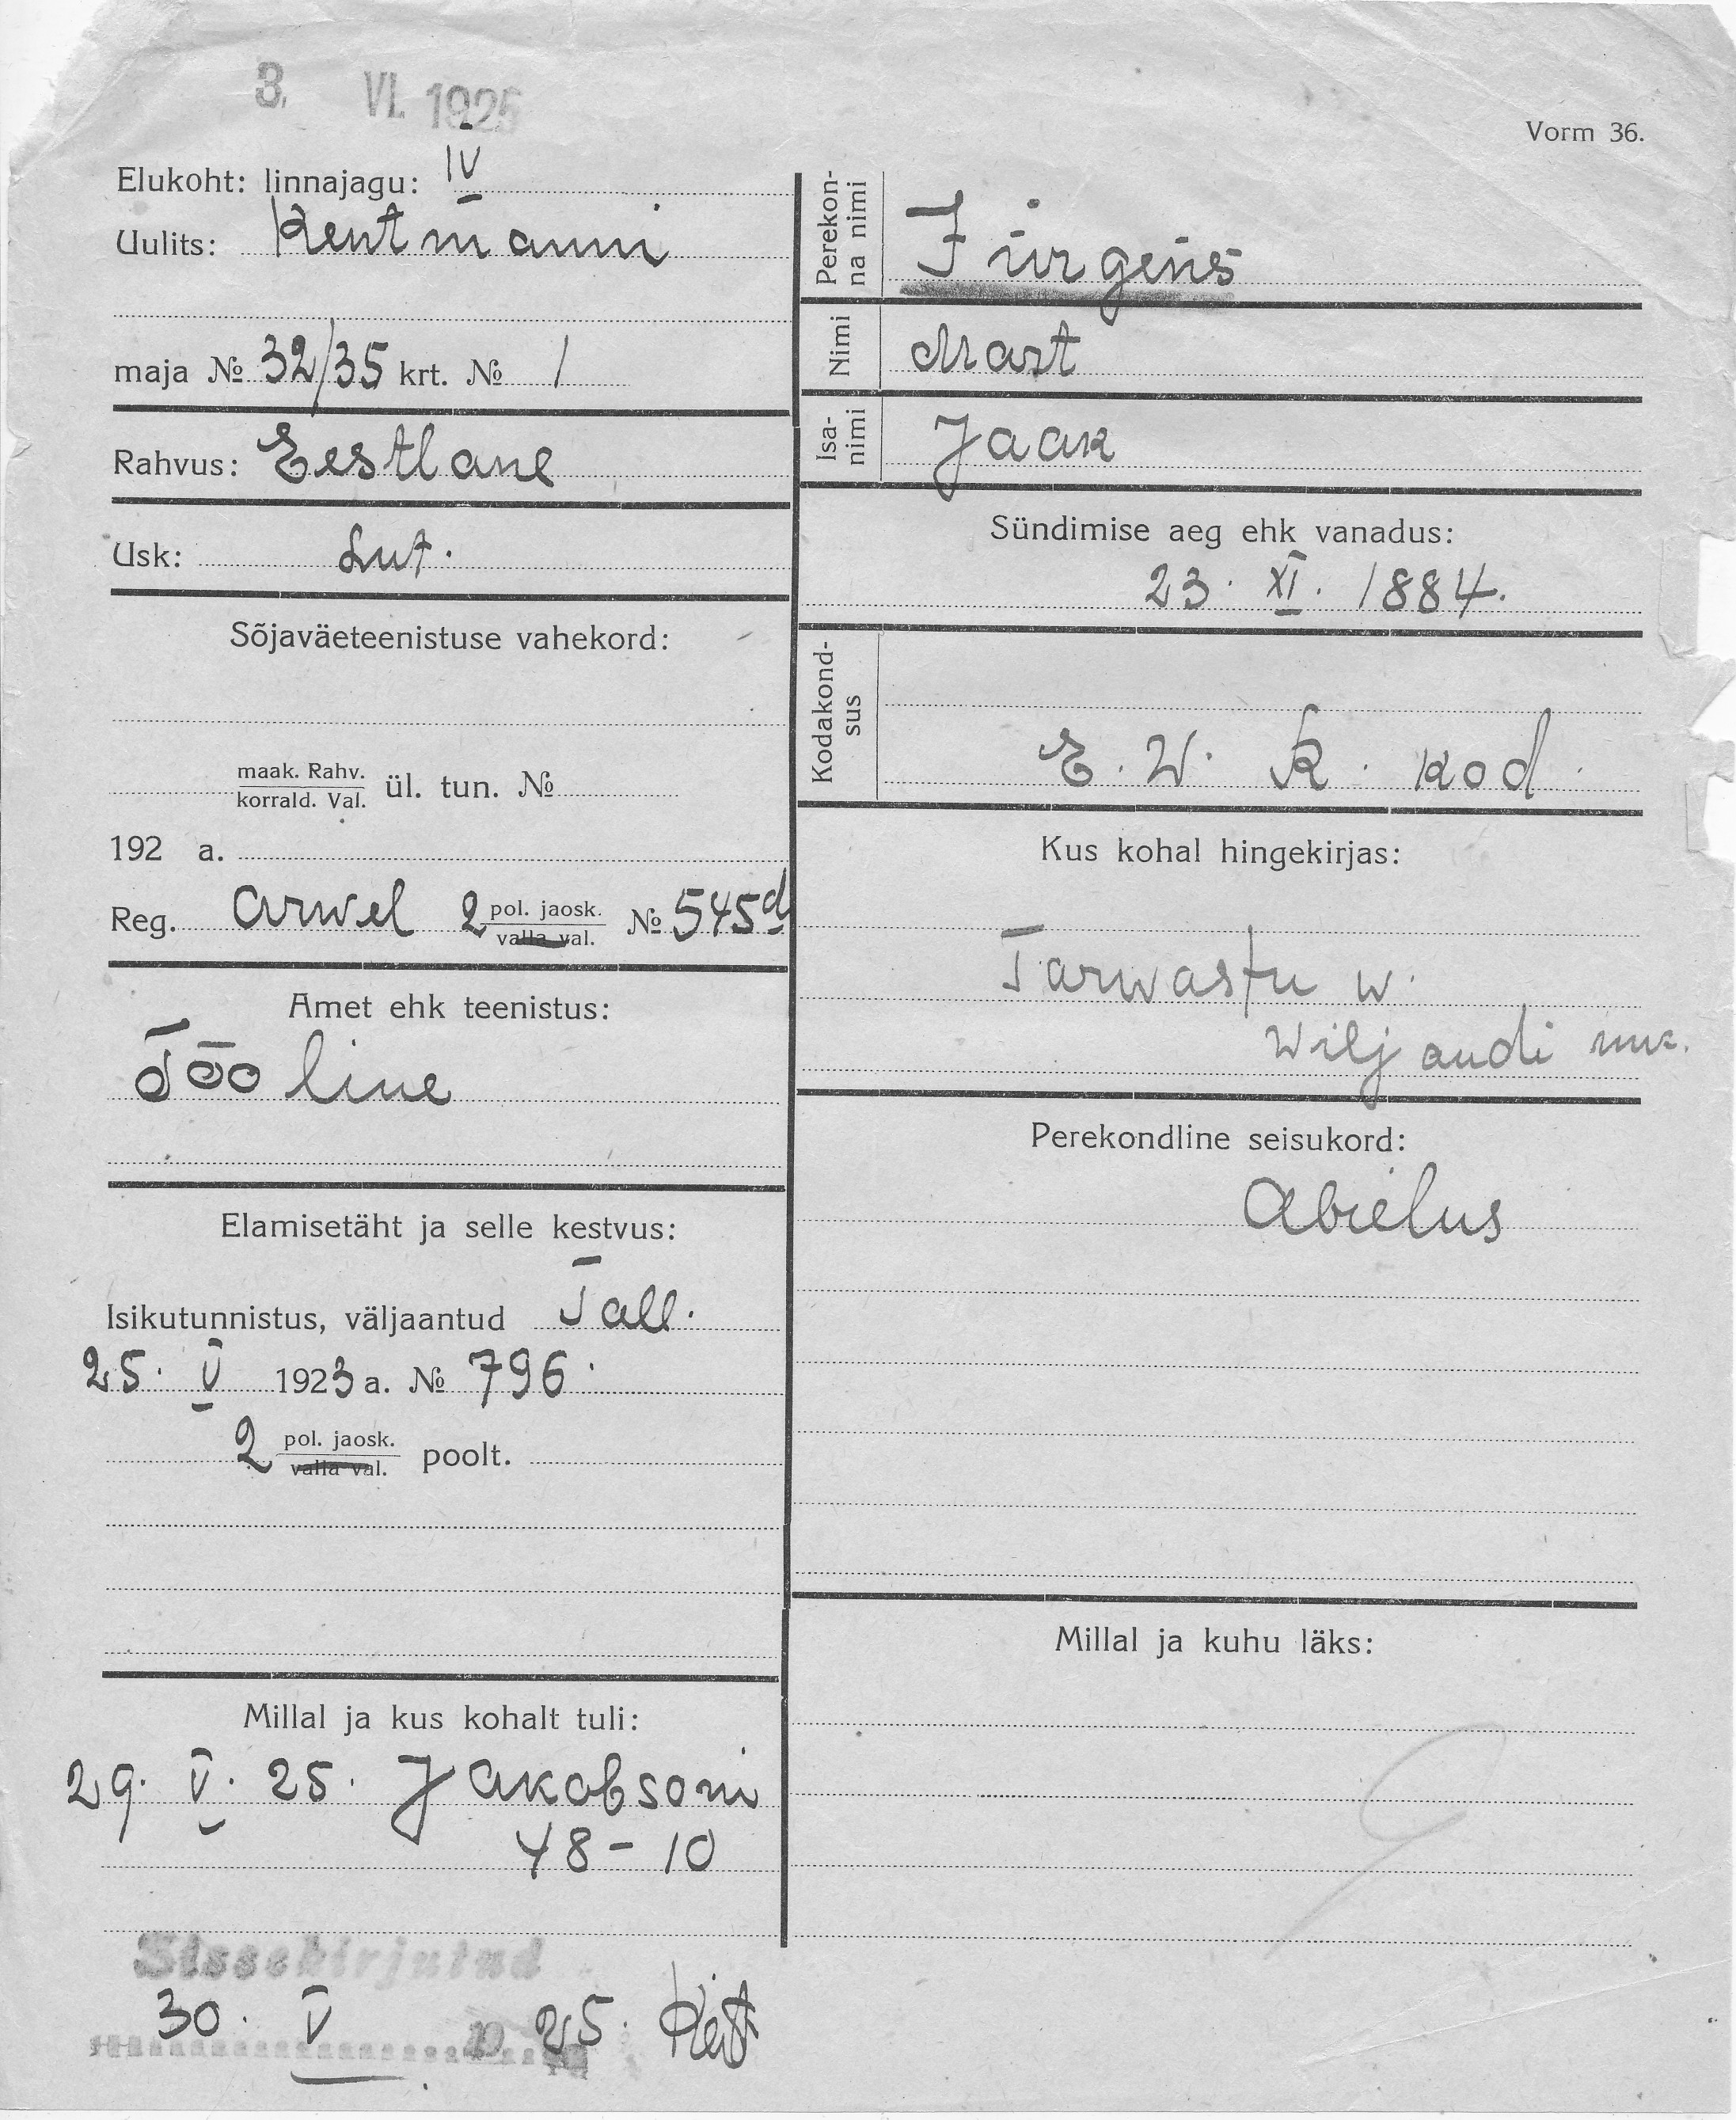 3. VI. 1925
Vorm 36.
Elukoht: linnajagu: IV
Uulits: Kentmanni
maja № 32/35 krt. № 1
Rahvus: Eestlane
Usk: Lut.
Sõjaväeteenistuse vahekord:
maak. Rahv.
korrald. Val. ül. tun. №
192 a.
Reg. arwel 2 pol. jaosk. № 545d
valla val.
Amet ehk teenistus:
Tööline
Elamisetäht ja selle kestvus:
Isikutunnistus, väljaantud Tall.
25. V 1923 a. № 796.
2 pol. jaosk. poolt.
valla val.
Millal ja kus kohalt tuli:
29. V. 25. Jakobsoni
48-10
Sissekirjutud
30. V 25.
Perekon-
na nimi Jürgens
Nimi Mart
Isa-
nimi Jaak
Sündimise aeg ehk vanadus:
23. XI. 1884.
Kodakond-
sus E. W. K. kod.
Kus kohal hingekirjas:
Tarwastu w.
Wiljandi mk.
Perekondline seisukord:
Abielus
Millal ja kuhu läks: